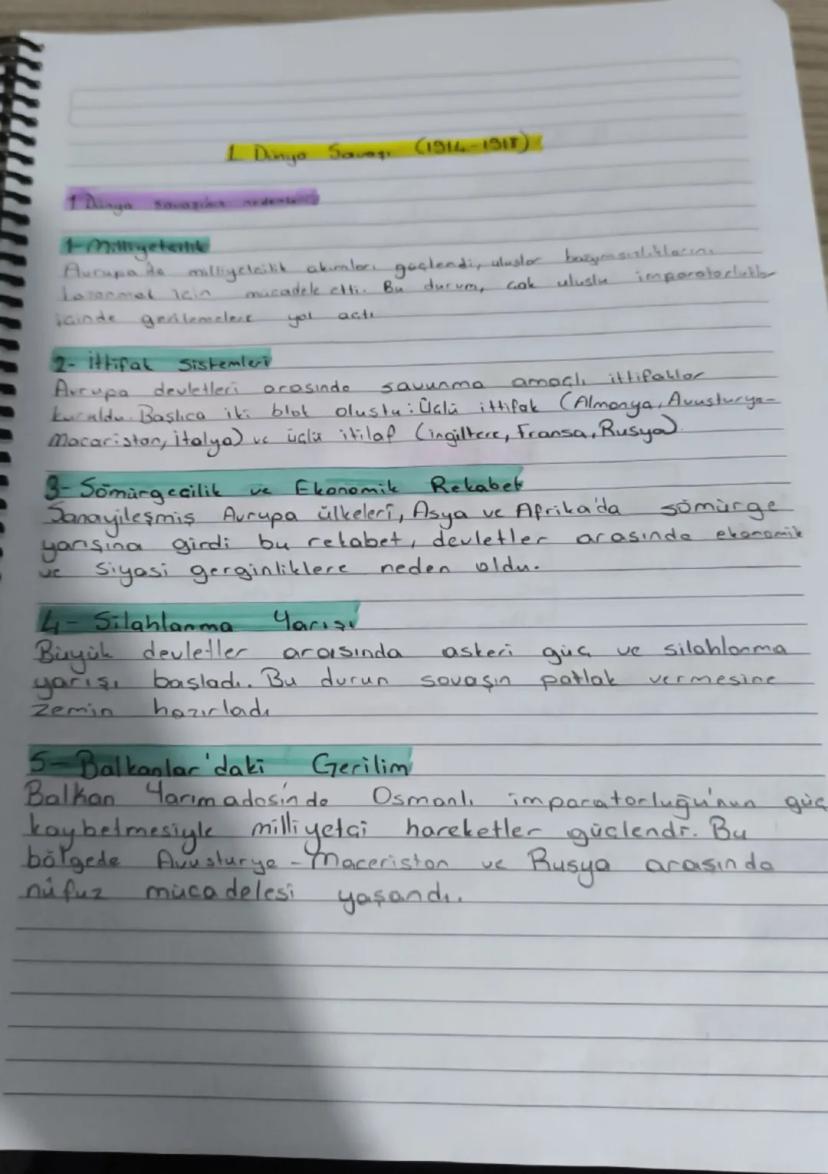 1. Dünya Savaşı (1914-1918)
1 Dünya savaşının nedenleri
1-Milliyetçilik
Avrupa'da milliyetçilik akımları güçlendi, uluslar bağımsızlıklarını
kazanmak için mücadele etti. Bu durum, çok uluslu imparatorluklar
içinde gerilemelere yol açtı
2- İttifak Sistemleri
Avrupa devletleri arasında savunma amaçlı ittifaklar
kuruldu. Başlıca iki blok oluştu: Üçlü ittifak (Almanya, Avusturya-
Macaristan, İtalya) ve üçlü itilaf (ingiltere, Fransa, Rusya)
3- Sömürgecilik ve Ekonomik Rekabet
Sanayileşmiş Avrupa ülkeleri, Asya ve Afrika'da sömürge
yarışına girdi bu rekabet, devletler arasında ekonomik
ve siyasi gerginliklere neden oldu.
4- Silahlanma Yarışı
Büyük devletler arasında askeri güç ve silahlanma
yarışı başladı. Bu durun savaşın patlak vermesine
zemin hazırladı
5- Balkanlar'daki Gerilim
Balkan Yarımadasin'de Osmanlı imparatorluğu'nun güç
kaybetmesiyle milliyetçi hareketler güçlendi. Bu
bölgede Avusturya-Maceristan ve Rusya arasında
nüfuz mücadelesi yaşandı.